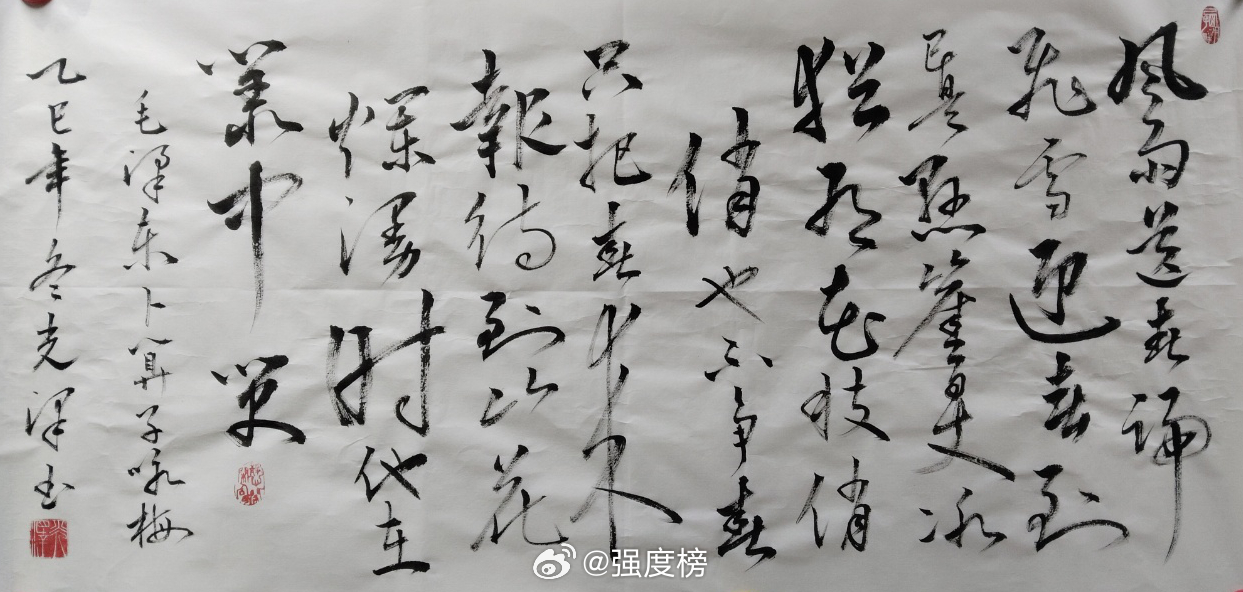 风雨送春归
飛雪迎春到
已是懸崖百丈冰
猶有花枝俏
俏也不争春
只把春来
報待到山花
爛漫时他在
叢中笑
毛澤東卜算子咏梅
乙巳年冬光澤书
@强度榜